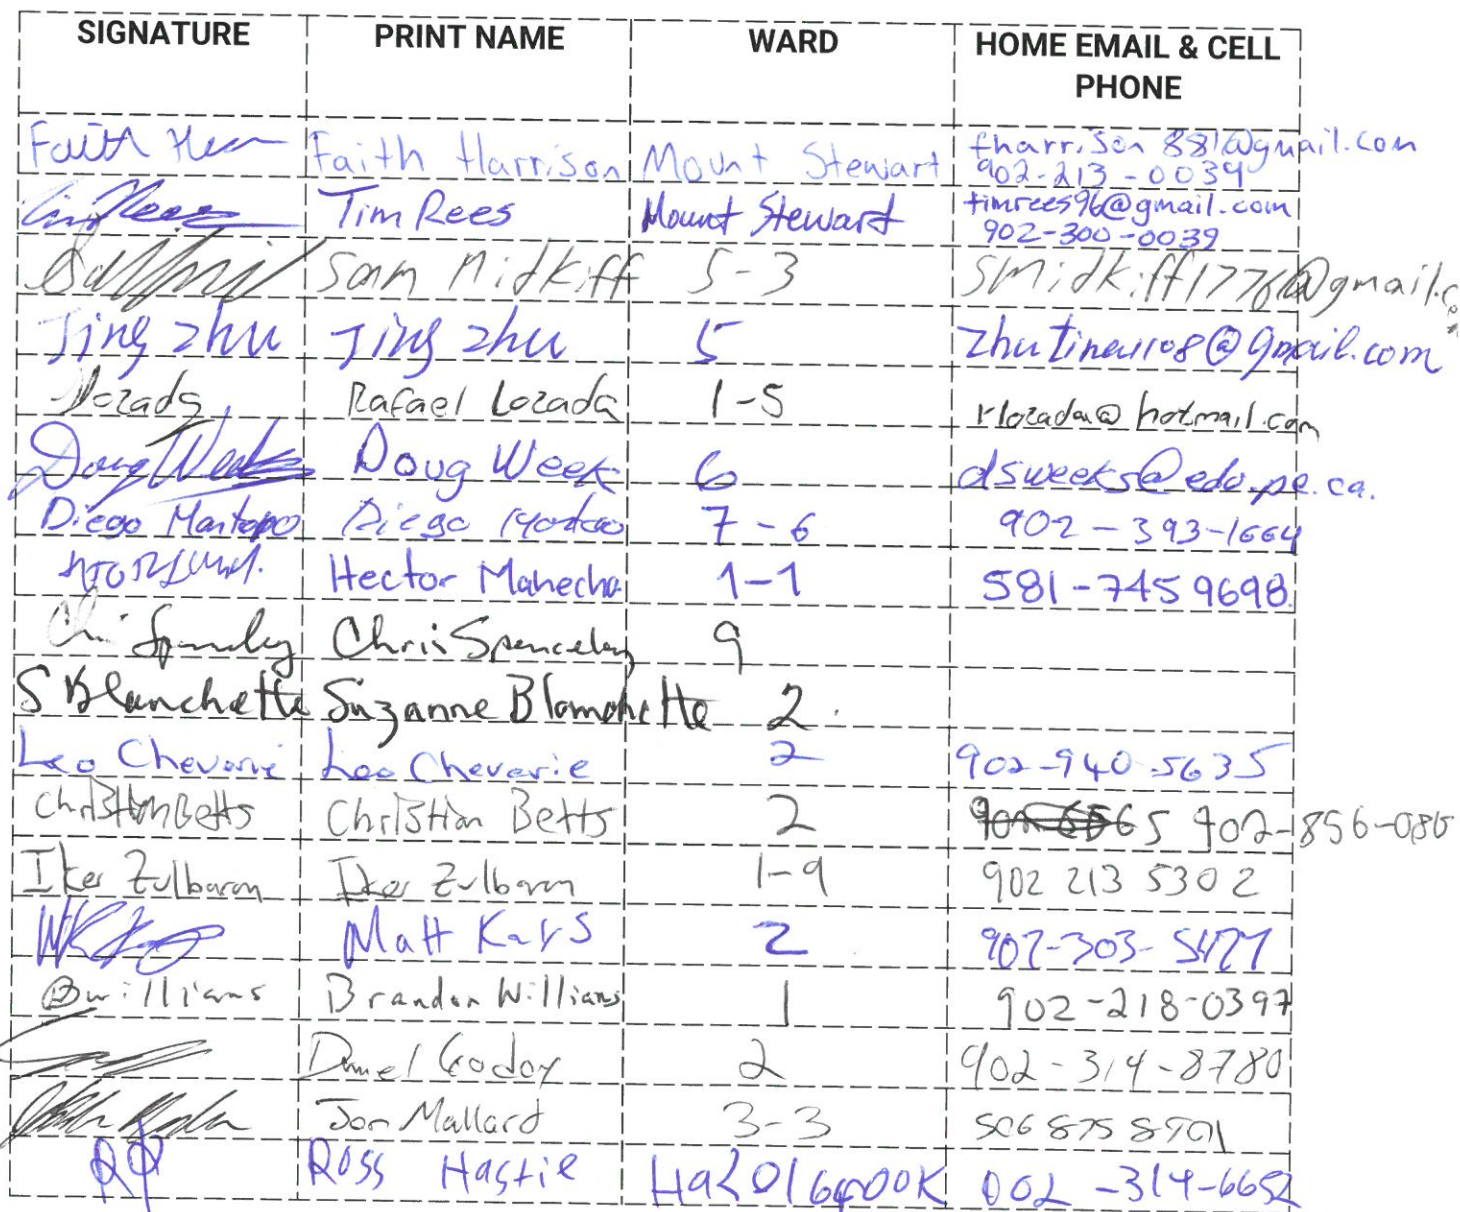 SIGNATURE PRINT NAME WARD HOME EMAIL & CELL
PHONE
Faith Faith Harrison Mount Stewart fharrison881@gmail.com
902-213-0039
Tim Rees Tim Rees Mount Stewart timrees96@gmail.com
902-300-0039
Sam Midkiff 5-3 smidkiff1776@gmail.com
Jing Zhu Jing Zhu 5
Lozada Rafael Lozada 1-5 rlozada@hotmail.com
Doug Weeks Doug Week 6 dsweeks@edu.pe.ca.
Diego Diego 7-6 902-393-1664
Hector Mahecha 1-1 581-7459698
Chris Spenceley 9
S Blanchette Suzanne Blanchette 2
Leo Cheverie Leo Cheverie 2 902-940-5635
Christian Betts Christian Betts 2
Iker Zulbaran Iker Zulbaran 1-9 902 213 5302
Matt Kays 2
BWilliams Brandon Williams 1 902-218-0397
Daniel Godoy 2 902-314-8780
Jon Mallard 3-3 506 875 8901
Ross Hastie